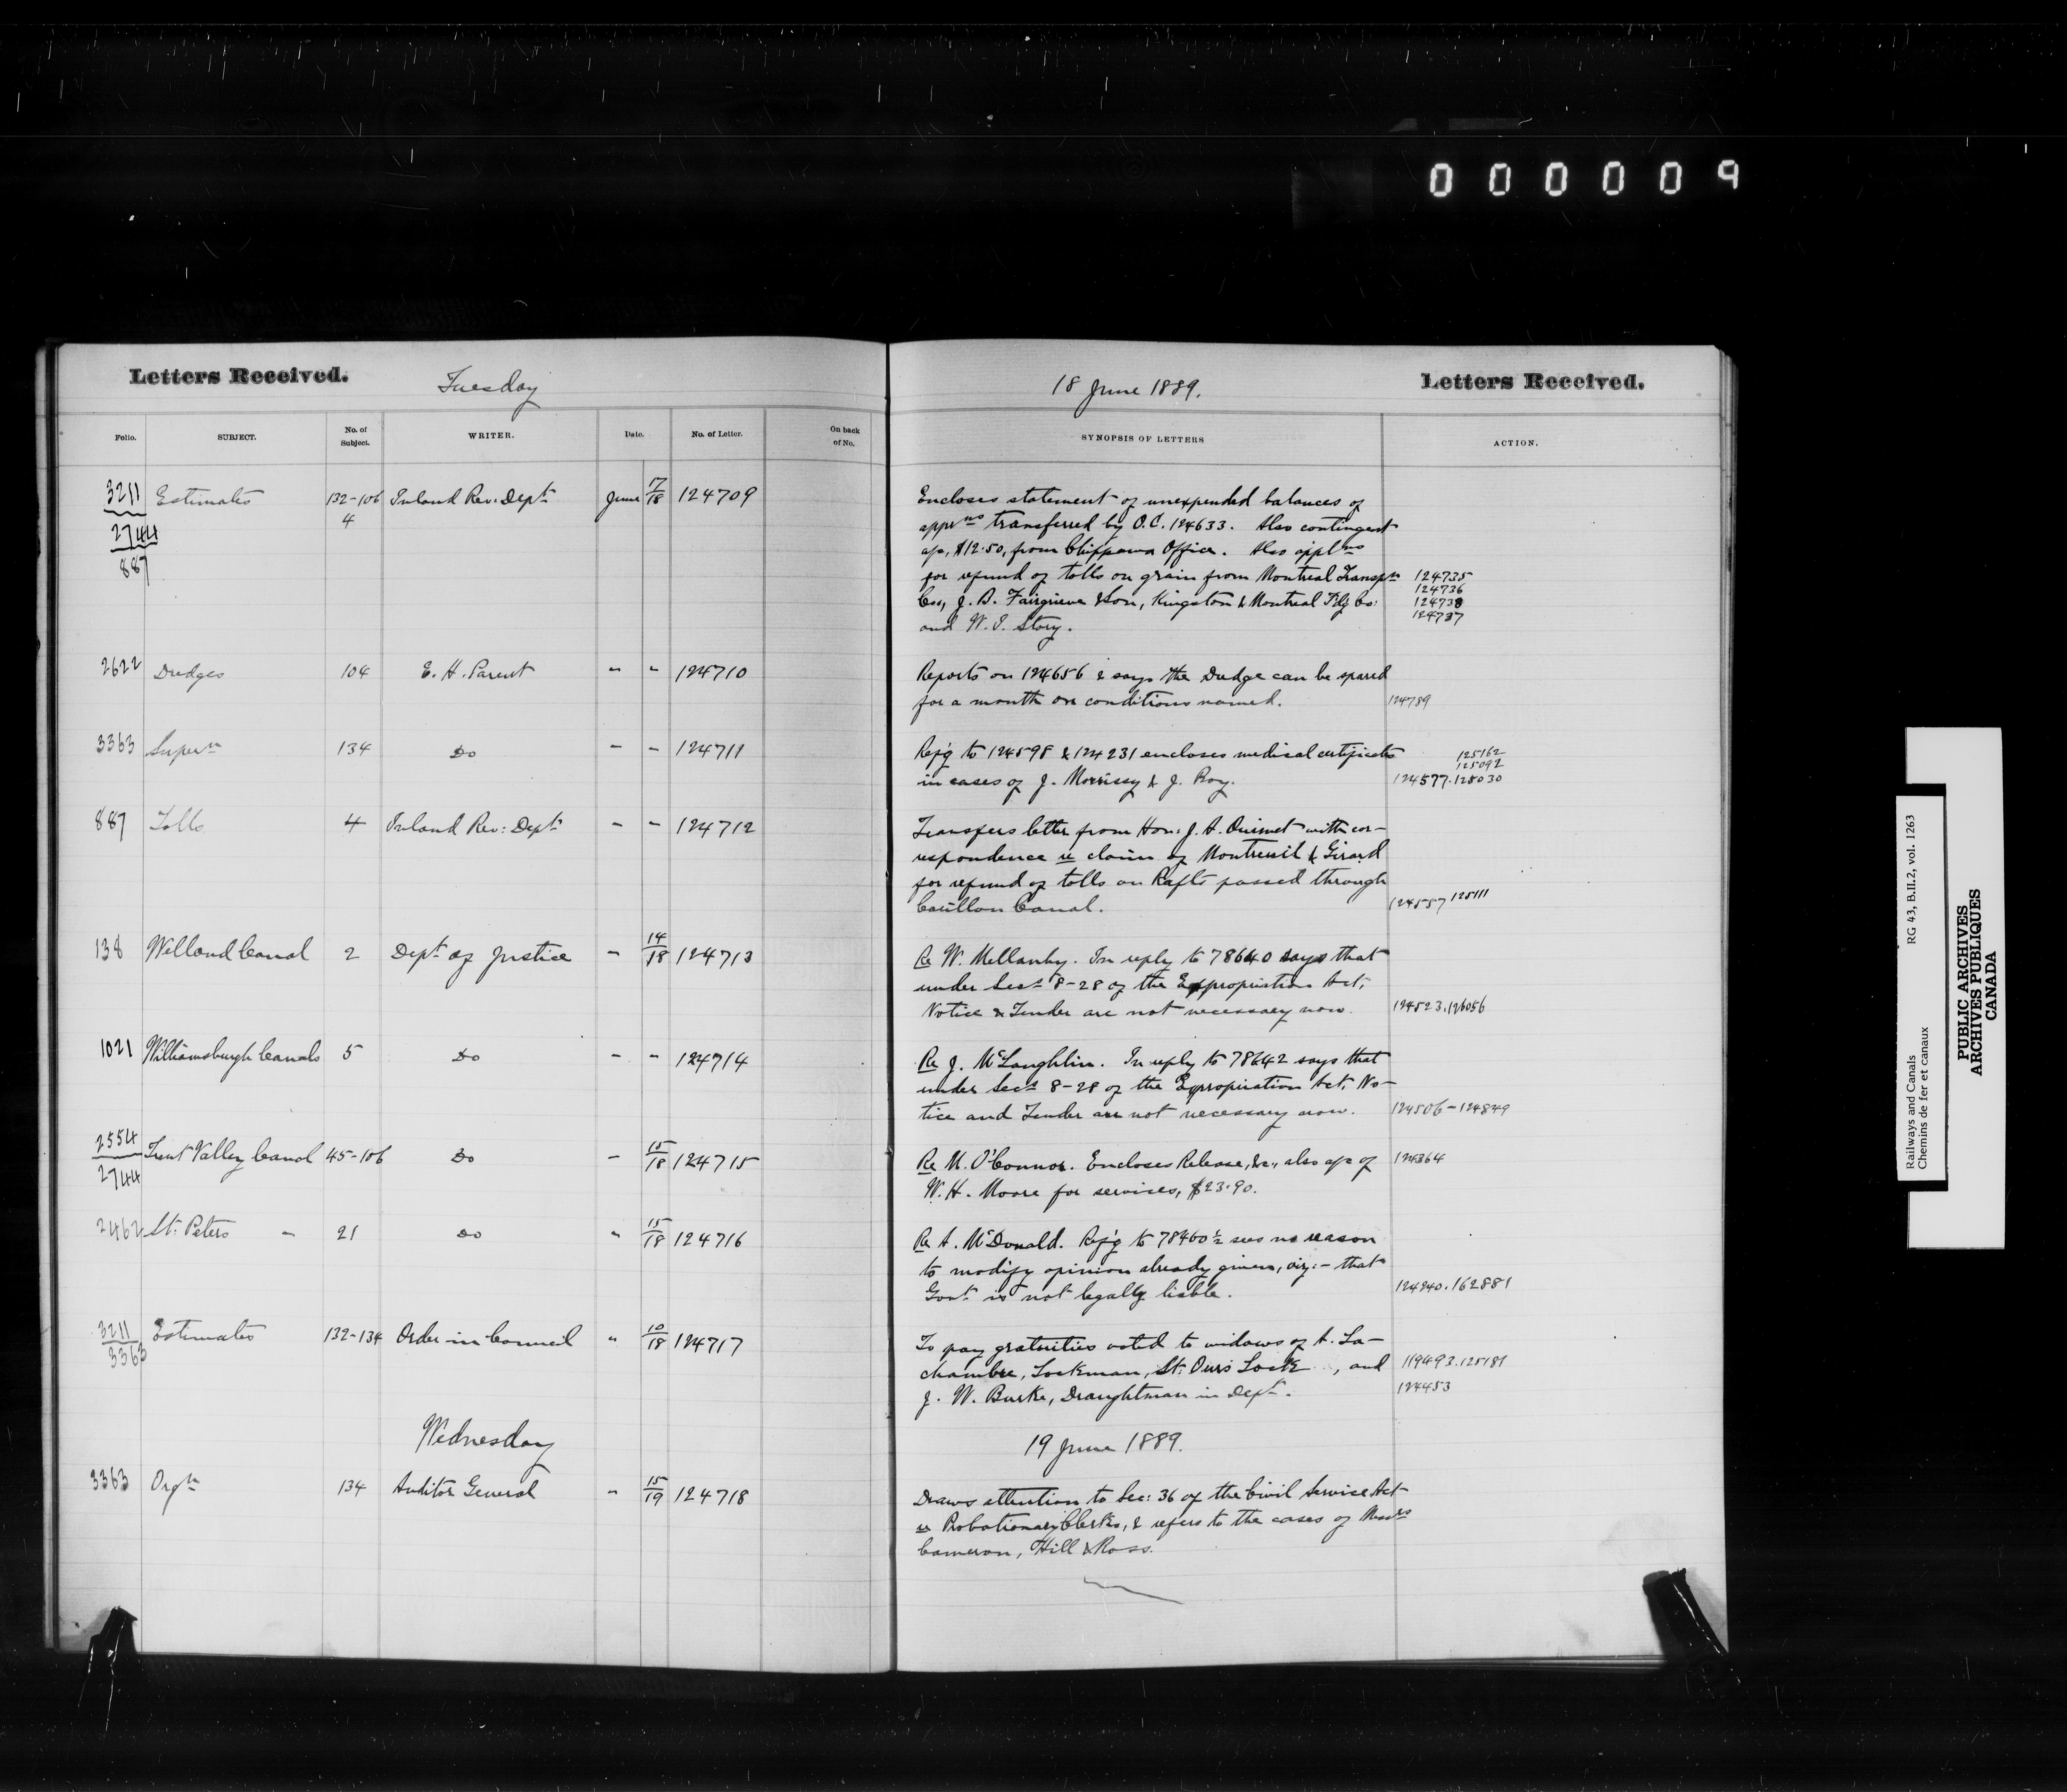 000009
Letters Received. Tuesday 18 June 1889. Letters Received.
Folio. SUBJECT. No. of Subject. WRITER. Date. No. of Letter. On back of No. SYNOPSIS OF LETTERS ACTION.
3211 Estimates 132-106 Inland Rev: Dept June 17/18 124709 Encloses statement of unexpended balances of
2744 4 apprns transferred by O.C. 124633. Also contingent
887 a/c, $12.50, from Chippawa Office. Also applns
for refund of tolls on grain from Montreal Transpn 124735
Co., J. B. Fairgrieve & Son, Kingston & Montreal Fdg Co: 124736 124738
and W. I. Story. 124737
2622 Dredges 104 E. H. Parent " " 124710 Reports on 124656 & says the Dredge can be spared
for a month on conditions named. 124789
3363 Supern 134 Do " " 124711 Ref'g to 124598 & 124231 encloses medical certificates 125162 125092
in cases of J. Morrissy & J. Roy. 124577.125030
887 Tolls 4 Inland Rev: Dept " " 124712 Transfers letter from Hon. J. A. Ouimet with cor-
respondence re claim of Montreuil & Girard
for refund of tolls on Rafts passed through
Carillon Canal. 124557 125111
138 Welland Canal 2 Dept of Justice " 14/18 124713 Re W. Mellanby. In reply to 78640 says that
under Sects 8-28 of the Expropriation Act,
Notice & Tender are not necessary now. 124523.126056
1021 Williamsburgh Canals 5 Do " " 124714 Re J. McLaughlin. In reply to 78642 says that
under Sects 8-28 of the Expropriation Act, No-
tice and Tender are not necessary now. 124506-124849
2554 Trent Valley Canal 45-106 Do " 15/18 124715 Re M. O'Connor. Encloses Release, &c., also a/c of 124364
2744 W. H. Moore for services, $23.90.
2462 St. Peters " 21 Do " 15/18 124716 Re A. McDonald. Ref'g to 78460½ sees no reason
to modify opinion already given, viz:- that
Govt is not legally liable. 124240.162881
3211 Estimates 132-134 Order in Council " 10/18 124717 To pay gratuities voted to widows of A. La-
3363 chambre, Lockman, St. Ours Lock, and 119493.125181
J. W. Burke, Draughtman in Dept. 124453
Wednesday 19 June 1889.
3363 Orgn 134 Auditor General " 15/19 124718 Draws attention to Sec: 36 of the Civil Service Act
re Probationary Clerks, & refers to the cases of Messrs
Cameron, Hill & Ross.
Railways and Canals RG 43, B.II.2, vol. 1263
Chemins de fer et canaux
PUBLIC ARCHIVES
ARCHIVES PUBLIQUES
CANADA